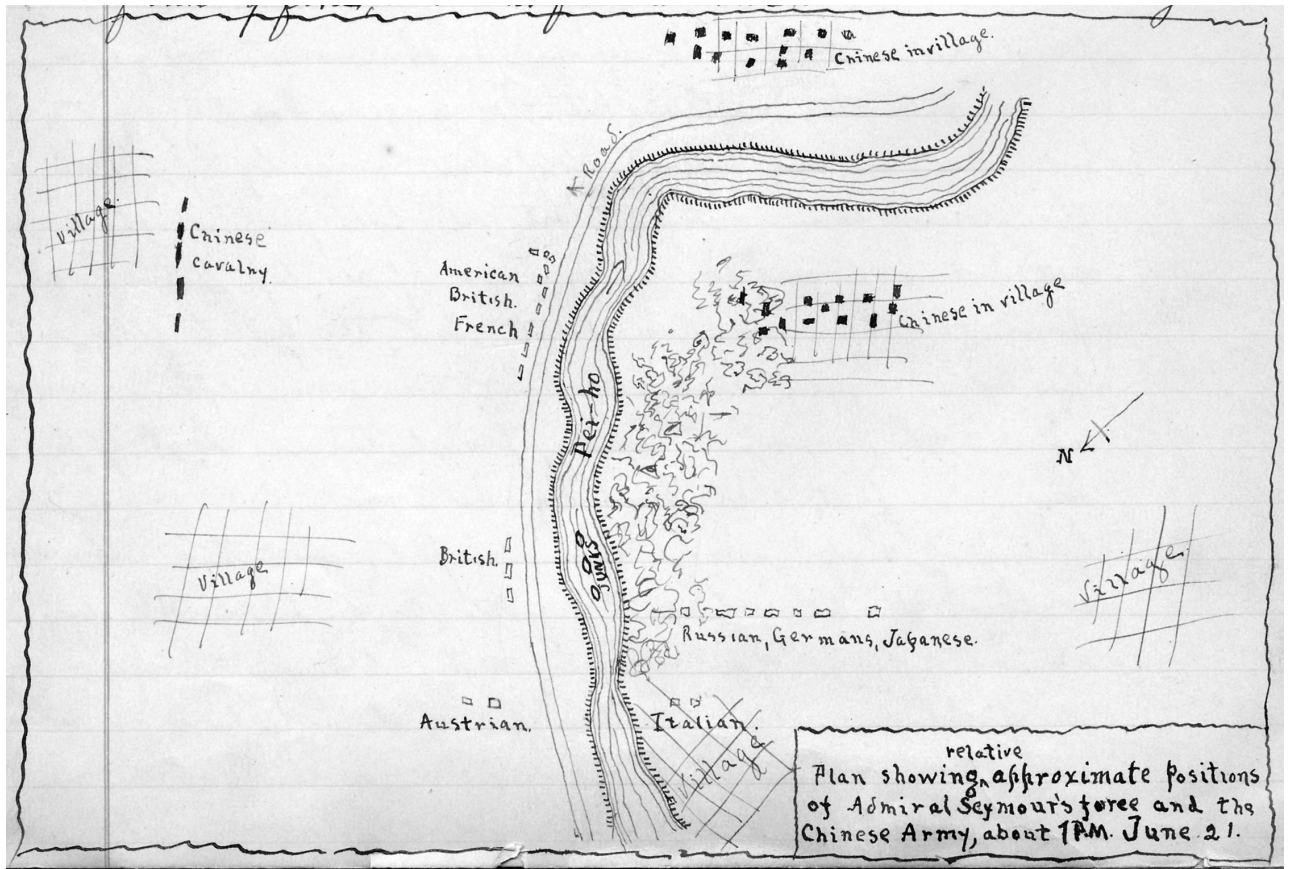 Chinese in village.
A Road.
Village.
Chinese
cavalry
American
British.
French
Chinese in village
Pei-ho
N
Junks
British.
Village
Village
Russian, Germans, Japanese.
Austrian.
Italian.
Village
relative
Plan showing ^ approximate positions
of Admiral Seymour's force and the
Chinese Army, about 1 P.M. June 21.